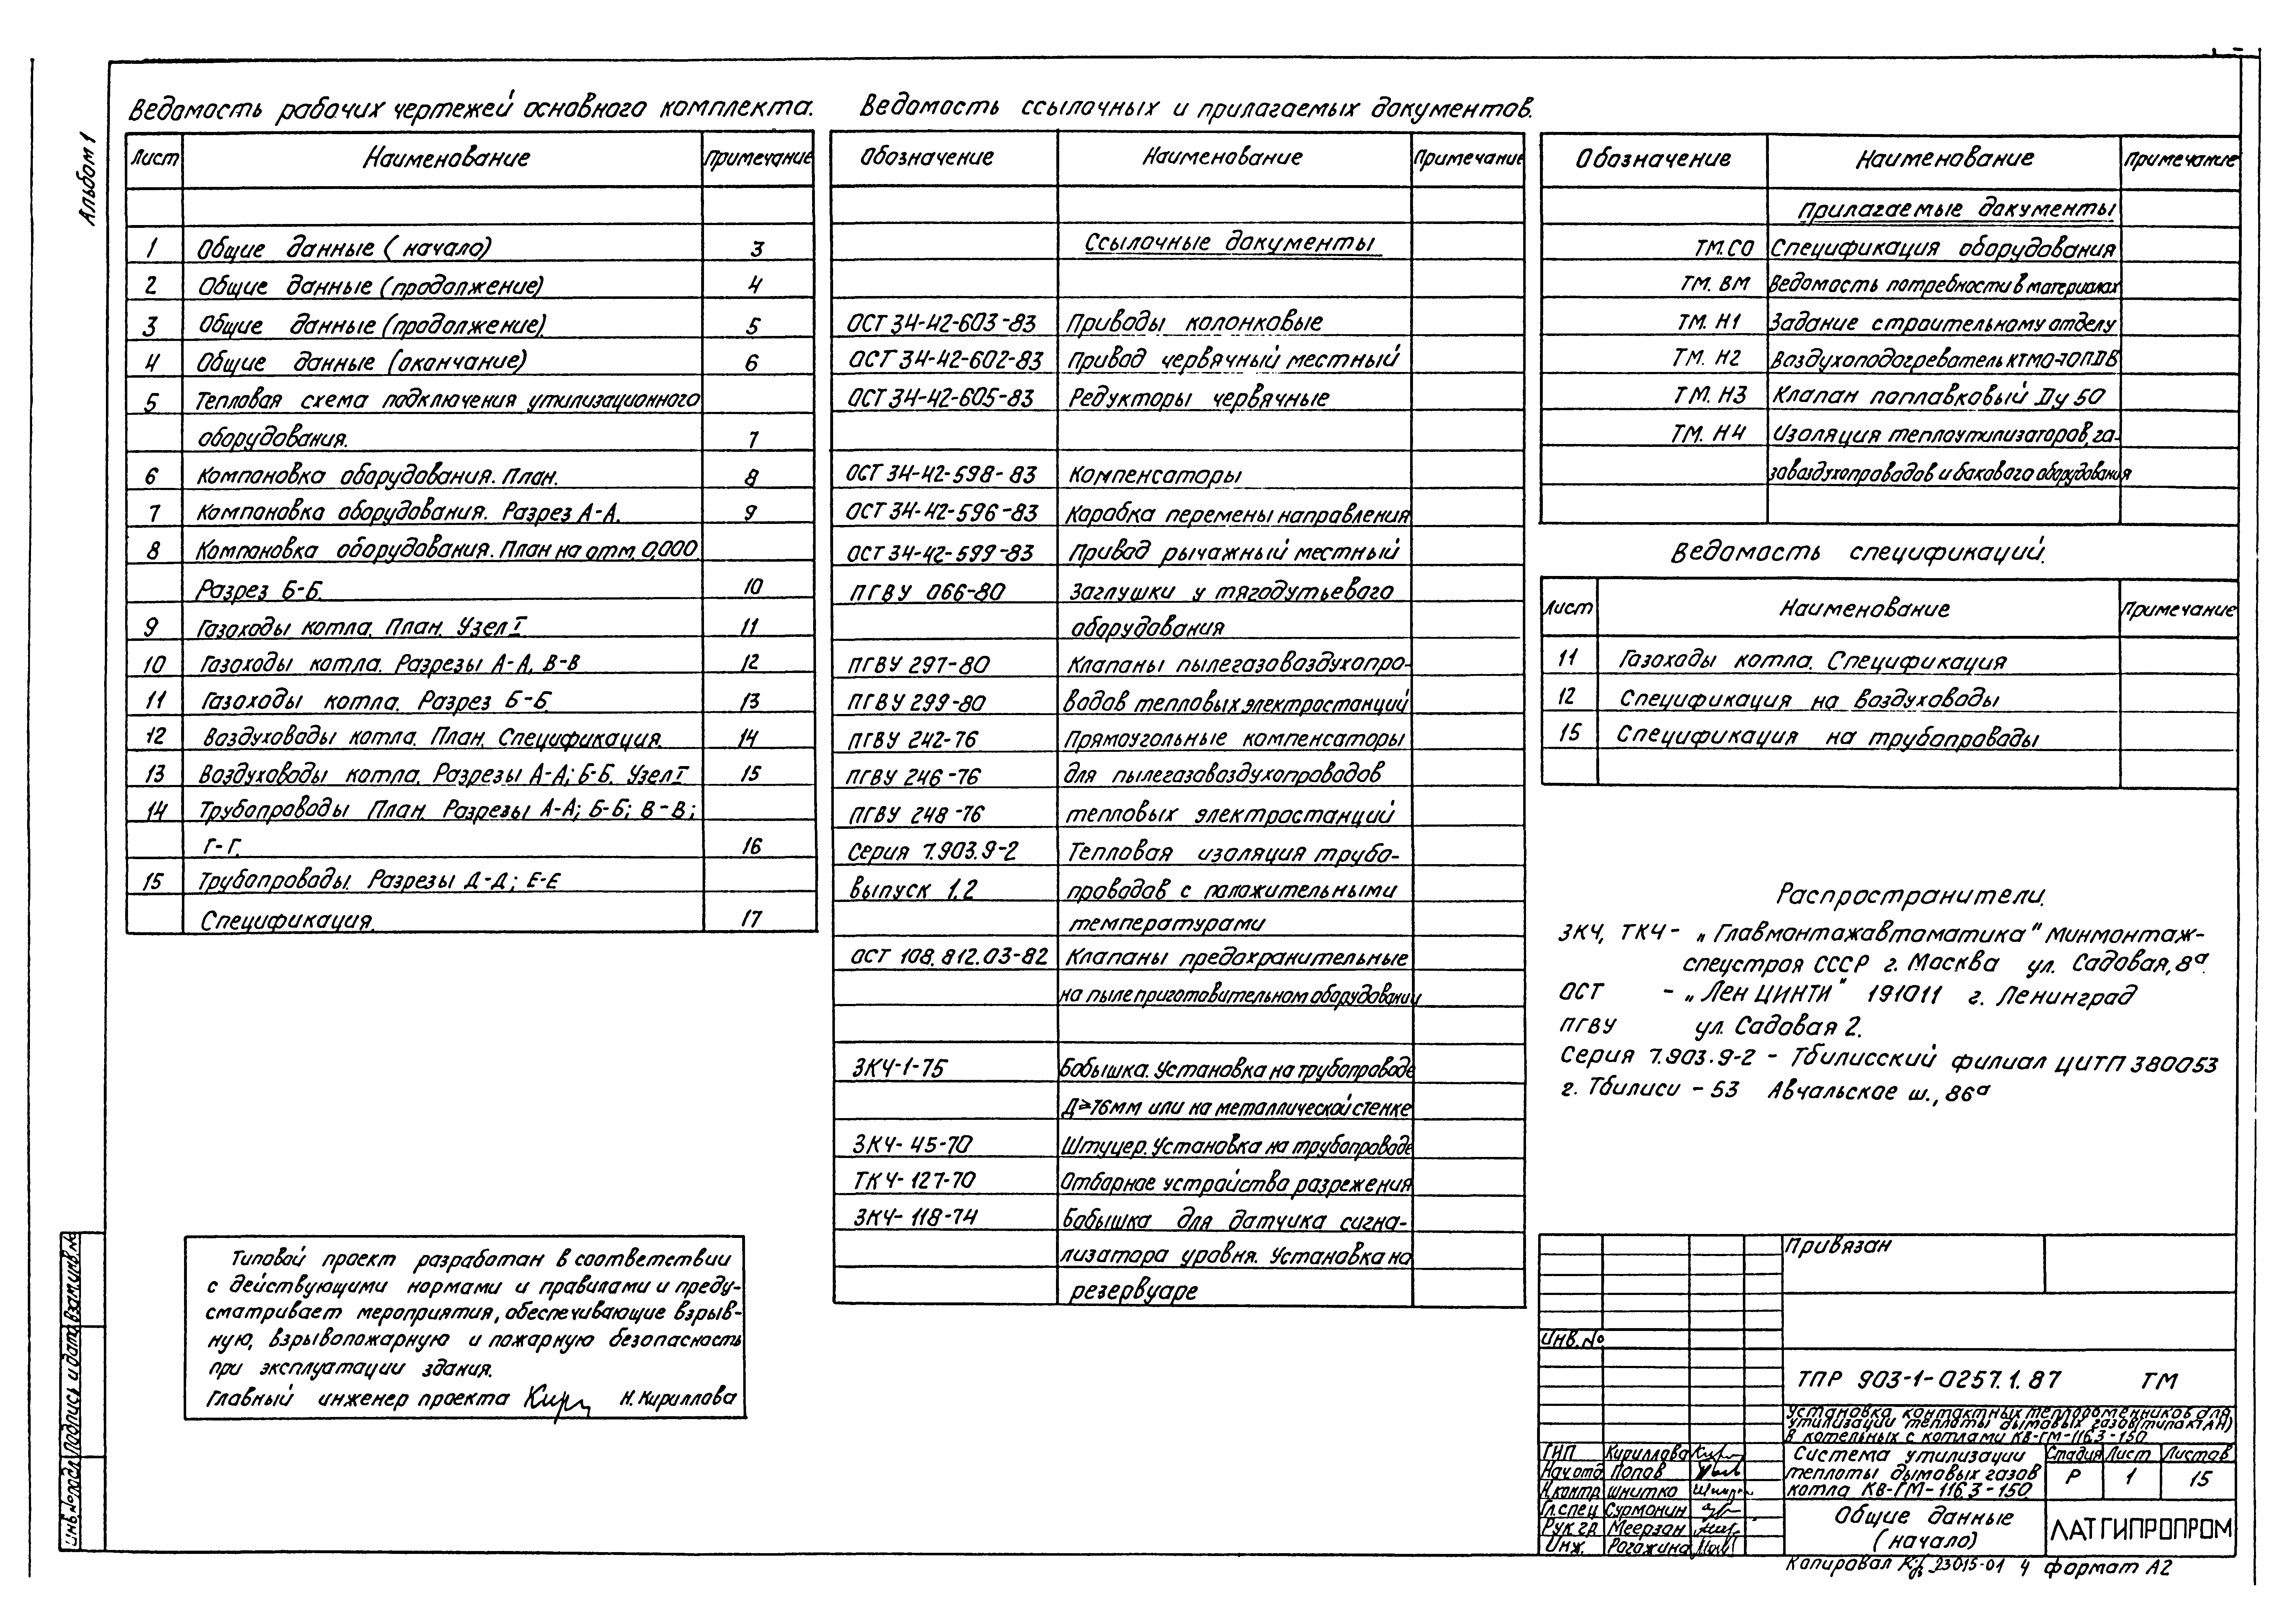 Альбом 1
Ведомость рабочих чертежей основного комплекта.
Лист Наименование Примечание
1 Общие данные (начало) 3
2 Общие данные (продолжение) 4
3 Общие данные (продолжение). 5
4 Общие данные (окончание) 6
5 Тепловая схема подключения утилизационного
оборудования. 7
6 Компоновка оборудования. План. 8
7 Компоновка оборудования. Разрез А-А. 9
8 Компановка оборудования. План на отм. 0,000.
Разрез Б-Б. 10
9 Газоходы котла. План. Узел I 11
10 Газоходы котла. Разрезы А-А, В-В 12
11 Газоходы котла. Разрез Б-Б. 13
12 Воздуховоды котла. План. Спецификация. 14
13 Воздуховоды котла. Разрезы А-А; Б-Б. Узел I 15
14 Трубопроводы План. Разрезы А-А; Б-Б; В-В;
Г-Г. 16
15 Трубопроводы. Разрезы Д-Д; Е-Е
Спецификация. 17
Типовой проект разработан в соответствии
с действующими нормами и правилами и преду-
сматривает мероприятия, обеспечивающие взрыв-
ную, взрывопожарную и пожарную безопасность
при эксплуатации здания.
Главный инженер проекта Н. Кириллова
Ведомость ссылочных и прилагаемых документов.
Обозначение Наименование Примечание
Ссылочные документы
ОСТ 34-42-603-83 Приводы колонковые
ОСТ 34-42-602-83 Привод червячный местный
ОСТ 34-42-605-83 Редукторы червячные
ОСТ 34-42-598-83 Компенсаторы
ОСТ 34-42-596-83 Коробка перемены направления
ОСТ 34-42-599-83 Привод рычажный местный
ПГВУ 066-80 Заглушки у тягодутьевого
оборудования
ПГВУ 297-80 Клапаны пылегазовоздухопро-
ПГВУ 299-80 водов тепловых электростанций
ПГВУ 242-76 Прямоугольные компенсаторы
ПГВУ 246-76 для пылегазовоздухопроводов
ПГВУ 248-76 тепловых электростанций
Серия 7.903.9-2 Тепловая изоляция трубо-
выпуск 1,2 проводов с положительными
температурами
ОСТ 108.812.03-82 Клапаны предохранительные
на пылеприготовительном оборудовании
ЗКЧ-1-75 Бобышка. Установка на трубопроводе
Д≥76мм или на металлической стенке
ЗКЧ-45-70 Штуцер. Установка на трубопроводе
ТКЧ-127-70 Отборное устройство разрежения
ЗКЧ-118-74 Бобышка для датчика сигна-
лизатора уровня. Установка на
резервуаре
Обозначение Наименование Примечание
Прилагаемые документы
ТМ.СО Спецификация оборудования
ТМ. ВМ Ведомость потребности в материалах
ТМ. Н1 Задание строительному отделу
ТМ. Н2 Воздухоподогреватель КТМО-70ПДВ
ТМ. Н3 Клапан поплавковый Ду 50
ТМ. Н4 Изоляция теплоутилизаторов, га-
зовоздухопроводов и бакового оборудования
Ведомость спецификаций.
Лист Наименование Примечание
11 Газоходы котла. Спецификация
12 Спецификация на воздуховоды
15 Спецификация на трубопроводы
Распространители.
ЗКЧ, ТКЧ - „Главмонтажавтоматика" Минмонтаж-
спецстроя СССР г. Москва ул. Садовая, 8а.
ОСТ - „Лен ЦИНТИ" 191011 г. Ленинград
ПГВУ ул. Садовая 2.
Серия 7.903.9-2 - Тбилисский филиал ЦИТП 380053
г. Тбилиси - 53 Авчальское ш., 86а
Привязан
Инв. №
ТПР 903-1-0257.1.87 ТМ
Установка контактных теплообменников для
утилизации теплоты дымовых газов (типа КТАН)
в котельных с котлами КВ-ГМ-116,3-150
Система утилизации
теплоты дымовых газов
котла КВ-ГМ-116,3-150
Стадия Лист Листов
Р 1 15
Общие данные
(начало)
ЛАТГИПРОПРОМ
ГИП Кириллова
Нач. отд. Попов
Н. контр. Шнитко
Гл. спец. Сурмонин
Рук. гр. Меерзан
Инж. Рогожина
Копировал 23015-01 4 формат А2
Взам. инв. №
Подпись и дата
Инв. № подл.